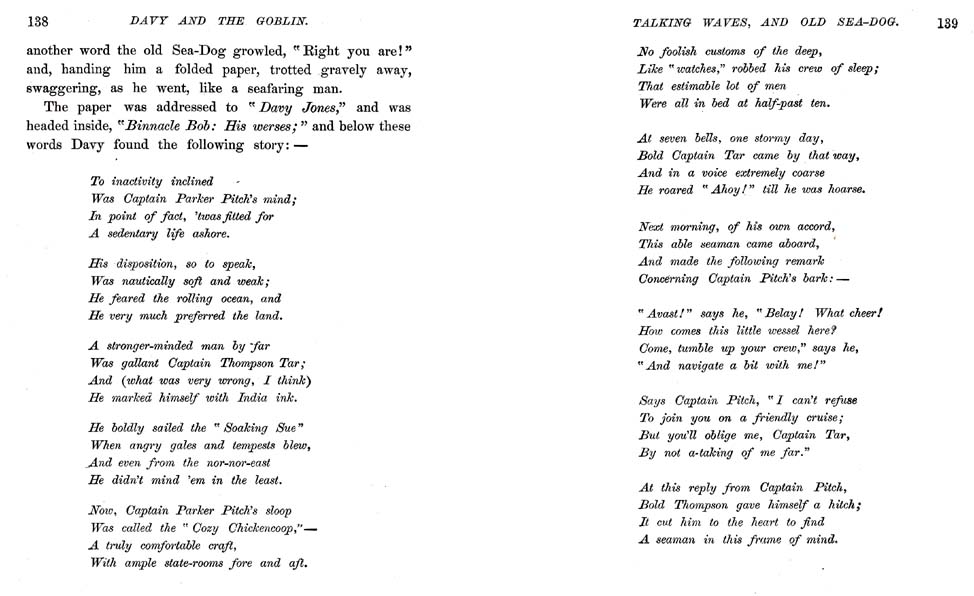 138
DAVY AND THE GOBLIN.
another word the old Sea-Dog growled, "Right you are!"
and, handing him a folded paper, trotted gravely away,
swaggering, as he went, like a seafaring man.
The paper was addressed to "Davy Jones," and was
headed inside, "Binnacle Bob: His werses;" and below these
words Davy found the following story: —
To inactivity inclined
Was Captain Parker Pitch's mind;
In point of fact, 'twas fitted for
A sedentary life ashore.
His disposition, so to speak,
Was nautically soft and weak;
He feared the rolling ocean, and
He very much preferred the land.
A stronger-minded man by far
Was gallant Captain Thompson Tar;
And (what was very wrong, I think)
He marked himself with India ink.
He boldly sailed the "Soaking Sue"
When angry gales and tempests blew,
And even from the nor-nor-east
He didn't mind 'em in the least.
Now, Captain Parker Pitch's sloop
Was called the "Cozy Chickencoop,"—
A truly comfortable craft,
With ample state-rooms fore and aft.
TALKING WAVES, AND OLD SEA-DOG.
139
No foolish customs of the deep,
Like "watches," robbed his crew of sleep;
That estimable lot of men
Were all in bed at half-past ten.
At seven bells, one stormy day,
Bold Captain Tar came by that way,
And in a voice extremely coarse
He roared "Ahoy!" till he was hoarse.
Next morning, of his own accord,
This able seaman came aboard,
And made the following remark
Concerning Captain Pitch's bark: —
"Avast!" says he, "Belay! What cheer!
How comes this little wessel here?
Come, tumble up your crew," says he,
"And navigate a bit with me!"
Says Captain Pitch, "I can't refuse
To join you on a friendly cruise;
But you'll oblige me, Captain Tar,
By not a-taking of me far."
At this reply from Captain Pitch,
Bold Thompson gave himself a hitch;
It cut him to the heart to find
A seaman in this frame of mind.